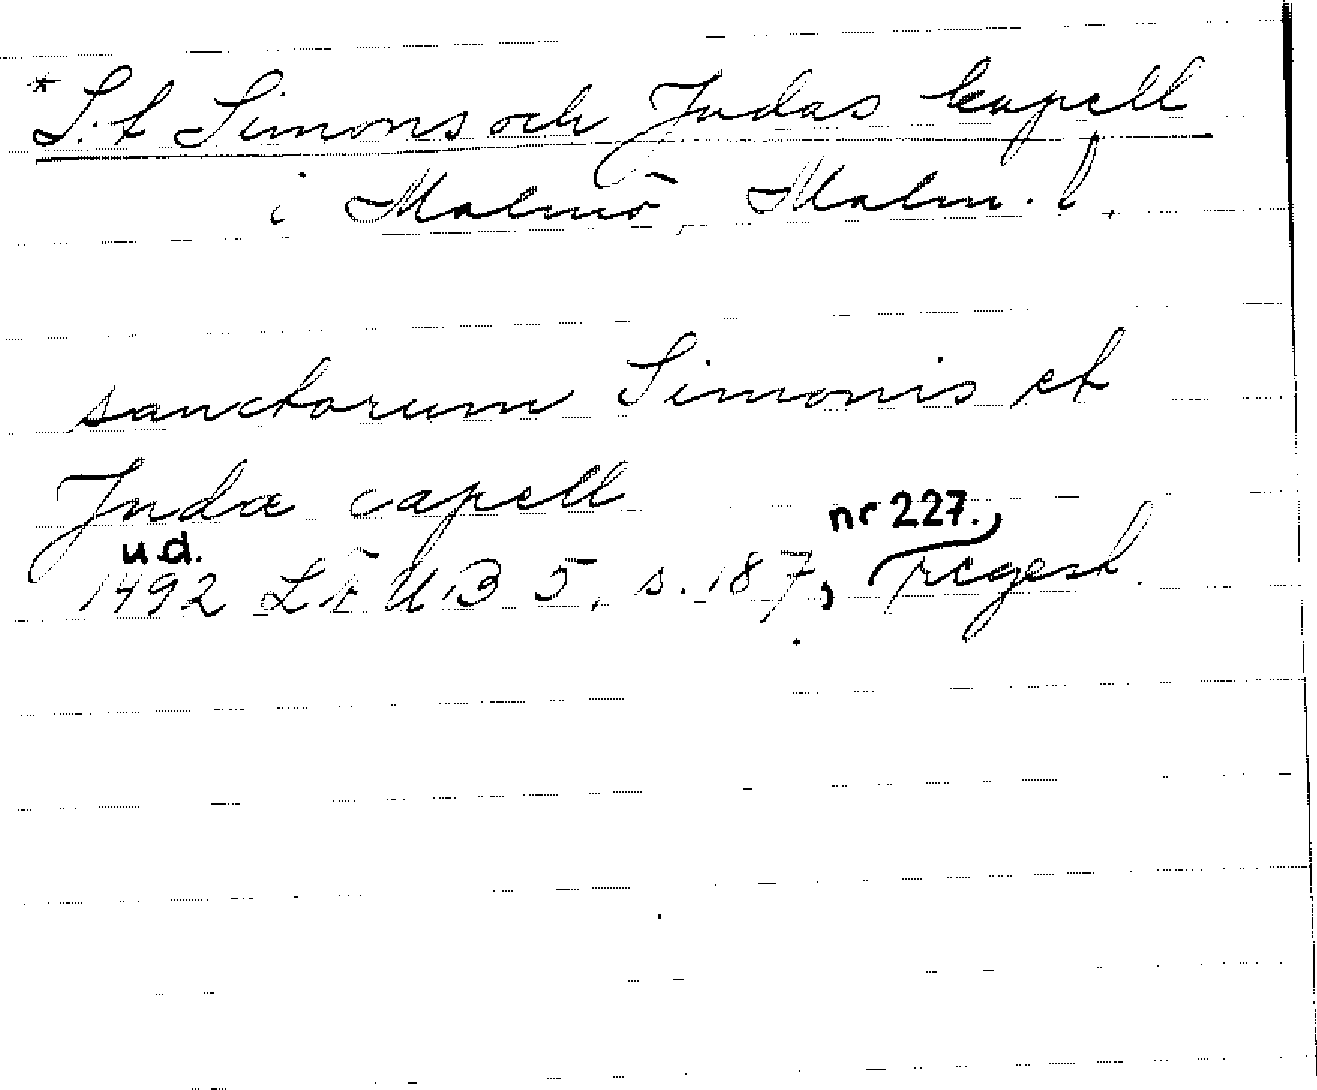 * S:t Simons och Judas kapell
i Malmö, Malm. l.
sanctorum Simonis et
Judæ capell
u.d. nr 227.,
1492 LÄUB 5, s. 187, regest.